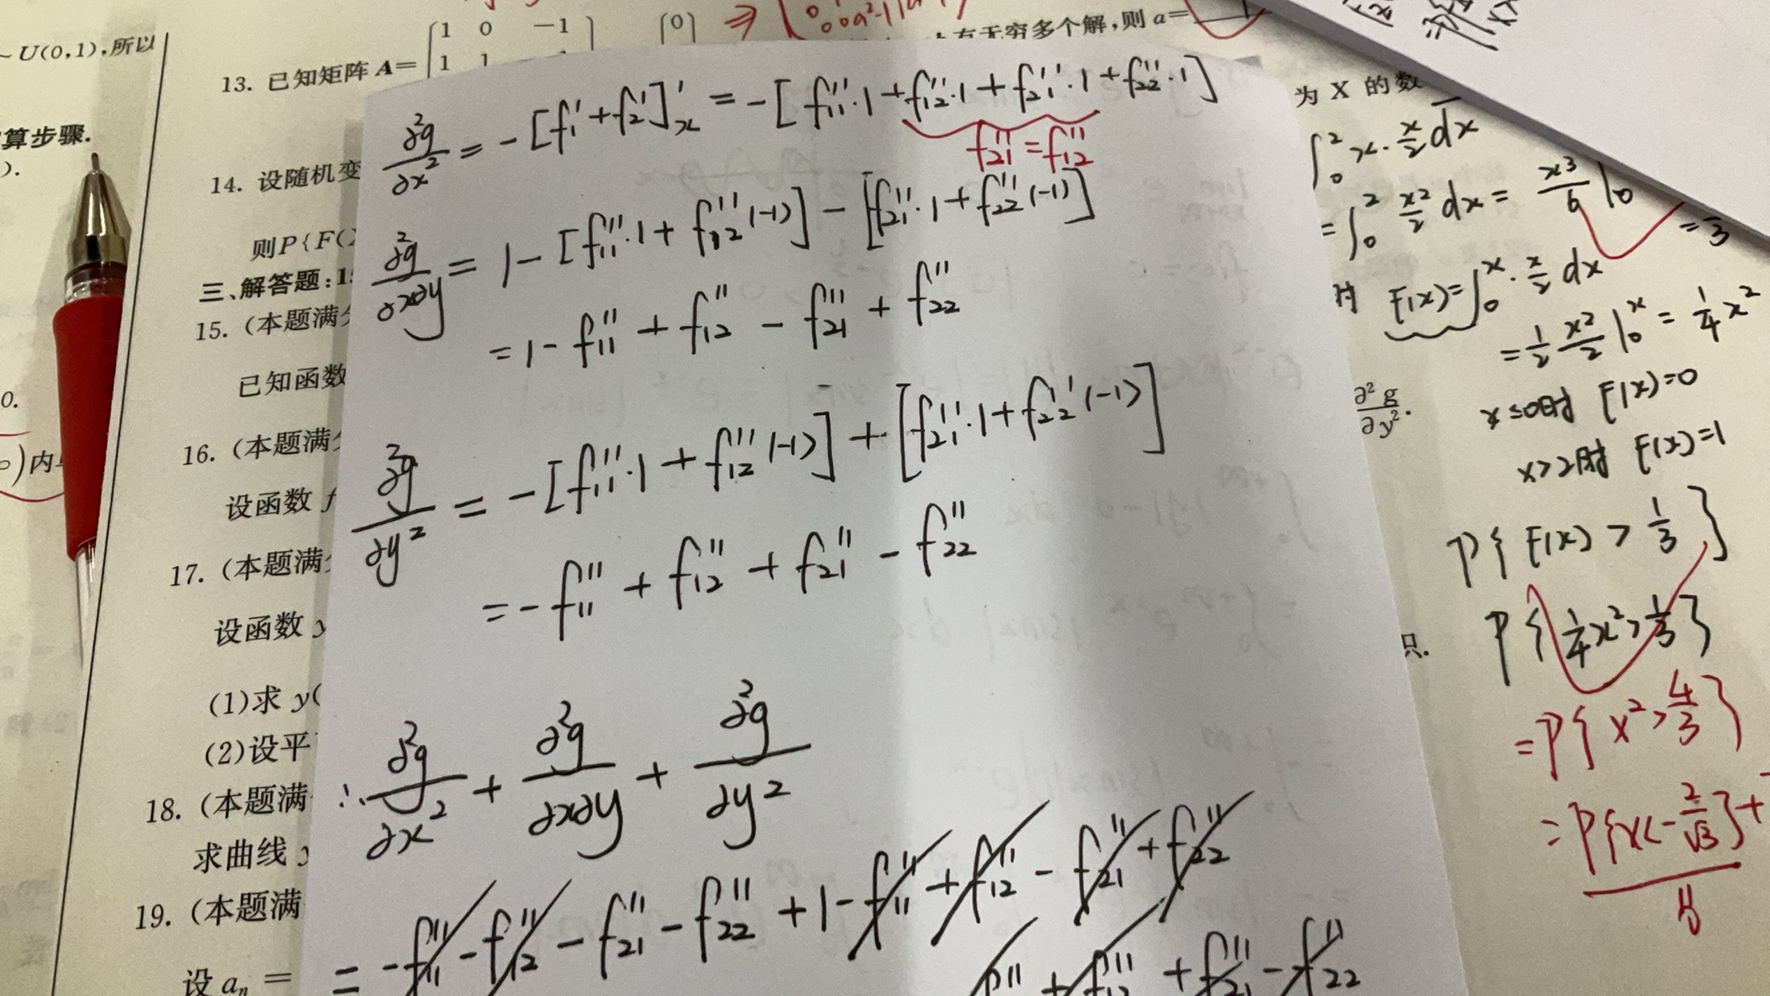 ~U(0,1),所以
算步骤.
).
0.
)内
13. 已知矩阵 A=
1 0 -1
1 1
[0]
有无穷多个解,则 a=
14. 设随机变
则P{F(
三、解答题:1
15. (本题满
已知函数
16. (本题满
设函数 f
17. (本题满
设函数 y
(1)求 y(
(2)设平
18. (本题满
求曲线
19. (本题满
设 aₙ =
∂²g/∂x² = -[f₁'+f₂']ₓ' = -[f₁₁''·1+f₁₂''·1+f₂₁''·1+f₂₂''·1]
f₂₁''=f₁₂''
∂²g/∂x∂y = 1-[f₁₁''·1+f₁₂''(-1)]-[f₂₁''·1+f₂₂''(-1)]
=1-f₁₁''+f₁₂''-f₂₁''+f₂₂''
∂²g/∂y² = -[f₁₁''·1+f₁₂''(-1)]+[f₂₁''·1+f₂₂''(-1)]
=-f₁₁''+f₁₂''+f₂₁''-f₂₂''
∴ ∂²g/∂x² + ∂²g/∂x∂y + ∂²g/∂y²
= -f₁₁''-f₁₂''-f₂₁''-f₂₂''+1-f₁₁''+f₁₂''-f₂₁''+f₂₂''
+f₁₂''+f₂₁''-f₂₂''
为 X 的数
∫₀² x·x/2 dx
=∫₀² x²/2 dx = x³/6 |₀
=3
时 F(x)=∫₀ˣ·x/2 dx
=1/2 x²/2 |₀ˣ = 1/4 x²
∂²g/∂y².
x≤0时 F(x)=0
x>2时 F(x)=1
P{F(x)>1/3}
只.
P{1/4x²>1/3}
=P{x²>4/3}
=P{x<-2/√3}+